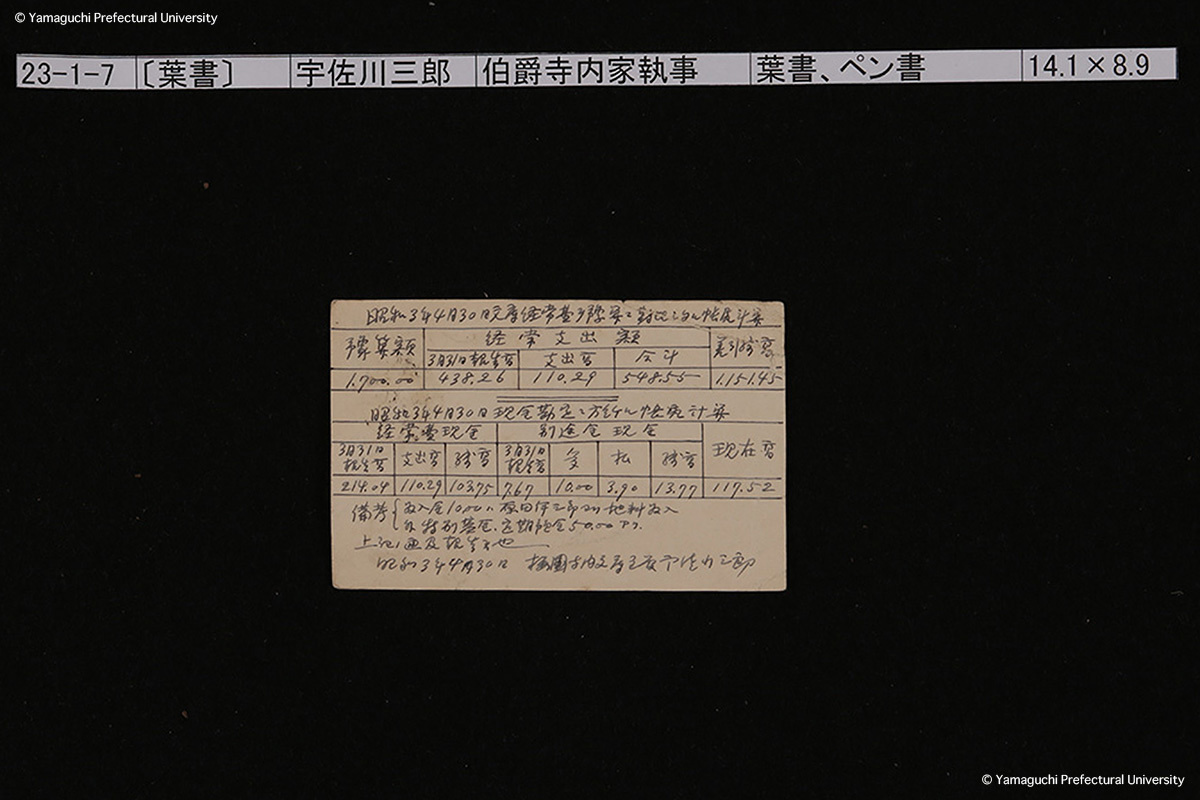 © Yamaguchi Prefectural University
23-1-7 〔葉書〕 宇佐川三郎 伯爵寺内家執事 葉書、ペン書 14.1×8.9
昭和3年4月30日文庫経常費予算ニ対比シタル帳尻計算
予算額 経常支出額 差引残高
3月31日報告高 支出高 合計
1.700.00 438.26 110.29 548.55 1.151.45
昭和3年4月30日現金勘定ニ於ケル帳尻計算
経常費現金 別途金現金 現在高
3月31日報告高 支出高 残高 3月31日報告高 受 払 残高
214.04 110.29 103.75 7.67 10.00 3.90 13.77 117.52
備考 収入金10.00ハ 地料収入
外特別基金、定期預金50.00アリ
上記ノ通及報告候也
昭和3年4月30日 桜圃寺内文庫主事宇佐川三郎
© Yamaguchi Prefectural University